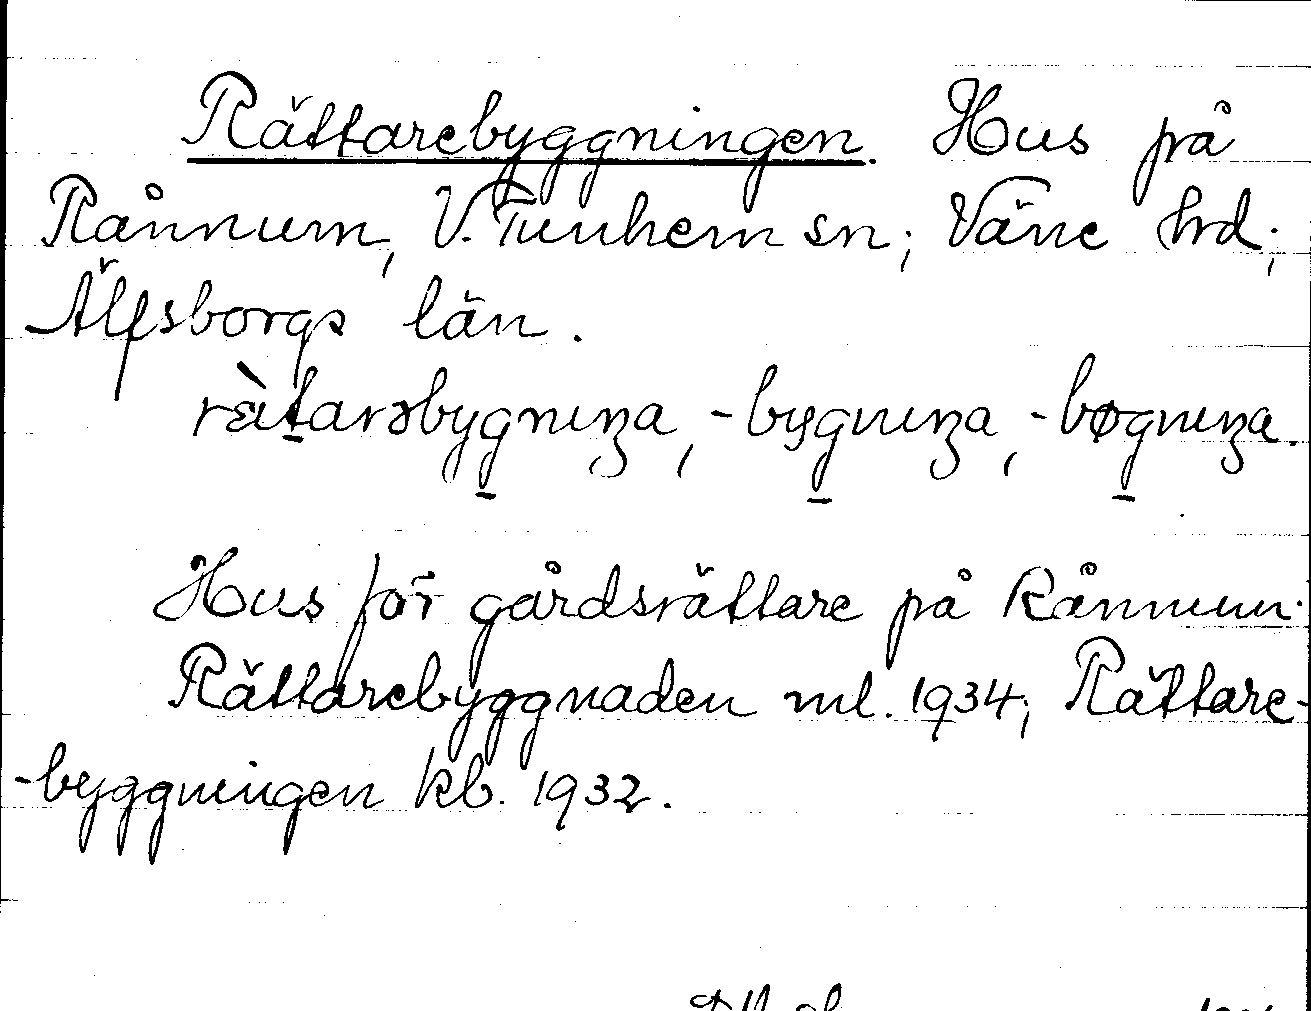 Rättarebyggningen. Hus på
Rånnum, V. Tunhem sn; Väne hrd;
Älfsborgs län.
rɛ̀tarəbygnɩŋa, -bygnɩŋa, -bøgnɩŋa.
Hus för gårdsrättare på Rånnum.
Rättarebyggnaden ml. 1934; Rättare-
-byggningen kb. 1932.